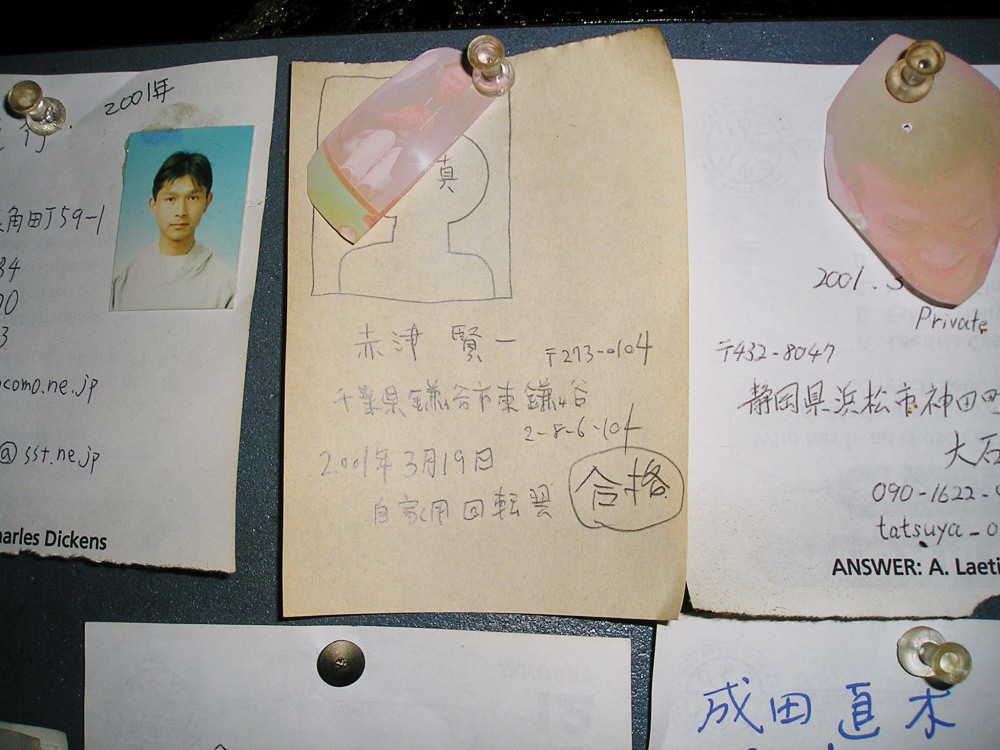 2001年
角田丁59-1
84
00
3
ocomo.ne.jp
@sst.ne.jp
harles Dickens
真
赤津 賢一
〒273-0104
千葉県鎌谷市東鎌谷
2-8-6-104
2001年3月19日
自家用回転翼
合格
2001.3
Private
〒432-8047
静岡県浜松市神田町
大石
090-1622-
tatsuya_o
ANSWER: A. Laeti
成田直木